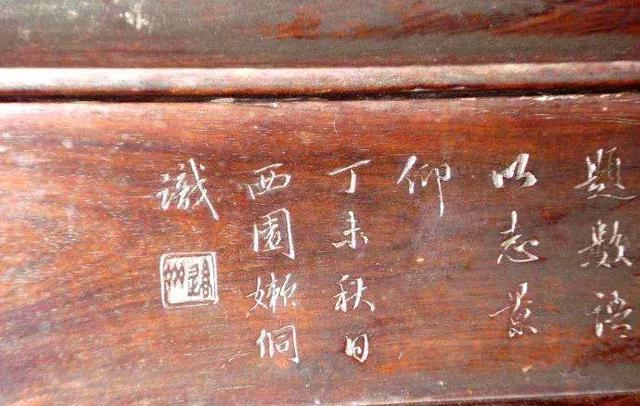 題數語
以志景
仰
丁未秋日
西園嬾侗
識